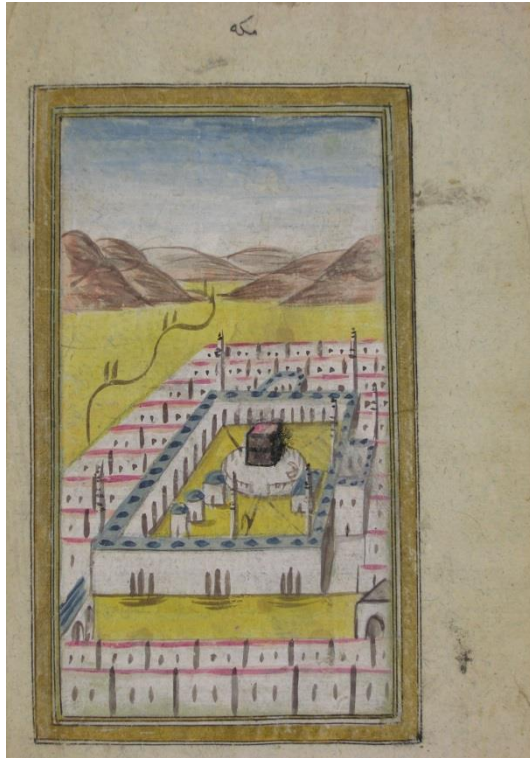 مكه